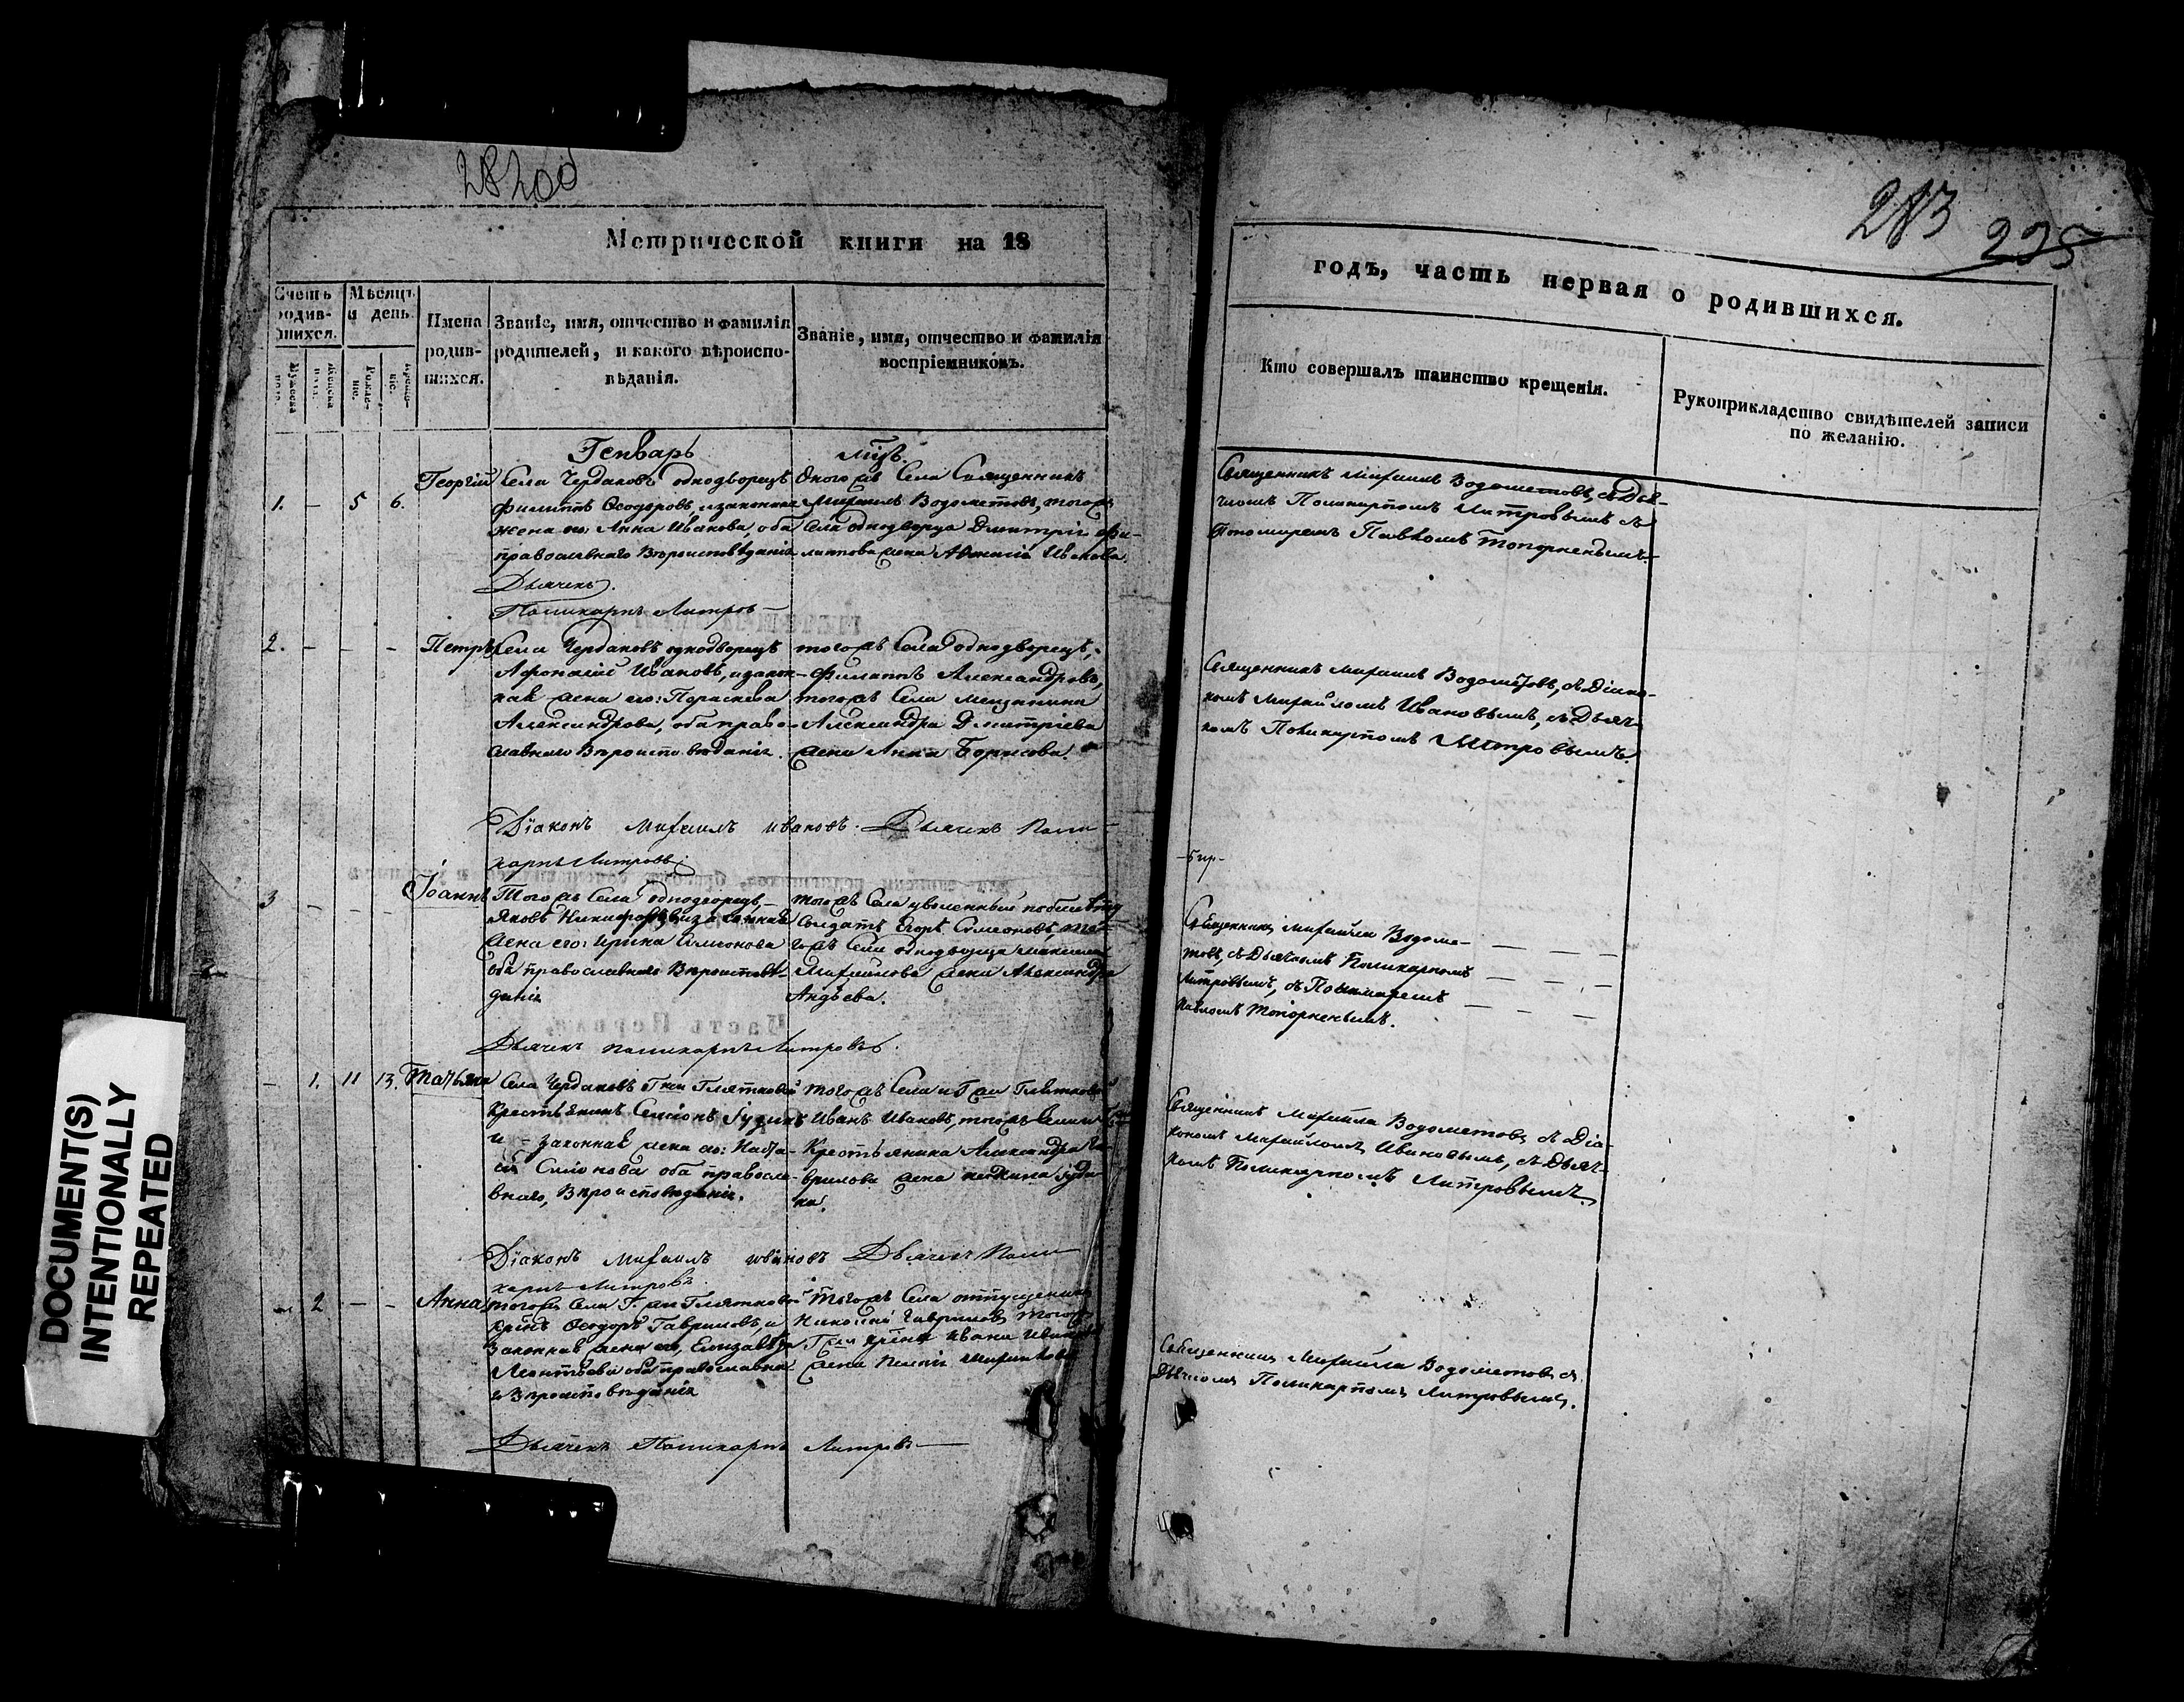 28200
Метрической книги на 18
Счетъ родив-шихся.
Мѣсяцъ и день.
Имена родив-шихся.
Званіе, имя, отчество и фамилія родителей, и какого вѣроиспо-вѣданія.
Званіе, имя, отчество и фамилія воспріемниковъ.
Генварь
Мцъ.
1. – 5 6.
Георгій
Села Чердаковъ однодворецъ
Филиппъ Ѳеодоровъ, и законная
жена его Анна Иванова, оба
православнаго Вѣроисповѣданія
Священникъ
Михаилъ Водометовъ, тогожъ
Села однодворца Дмитрія Фи-
липова жена Иванова.
Дьячекъ
Поликарпъ Митровъ
2. – – –
Петръ
Села Чердаковъ однодворецъ
Афонасій Ивановъ, и закон-
ная жена его: Параскева
Александрова, оба право-
славнаго Вѣроисповѣданія.
тогожъ Села однодворецъ,
Филиппъ Александровъ,
тогожъ Села мещанина
Александра Дмитріева
жена Анна Борисова.
Діаконъ Михаилъ Ивановъ. Дьячекъ Поли-
карпъ Митровъ.
3 – – –
Іоаннъ
Тогожъ Села однодворецъ,
Яковъ Никифоровъ, и законная
жена его: Ирина Симеонова
оба православнаго Вѣроисповѣ-
данія
тогожъ Села уволенный
Солдатъ Егоръ Симеоновъ, то-
гожъ Села однодворца
жена Александра
Андѣева.
Дьячекъ Поликарпъ Митровъ.
– 1. 11 13.
Татьяна
Села Чердаковъ Гжи Глятковой
Крестьянинъ Симіонъ Іудинъ
и законная жена его: Наста-
Симіонова оба правосла-
внаго, Вѣроисповѣданія.
тогожъ Села и Гжи Глятковой
Иванъ Ивановъ, тогожъ Села
Крестьянина Александра Га-
врилова жена Іуди-
на.
Діаконъ Михаилъ Ивановъ Дьячекъ Поли
карпъ Митровъ.
– 2 – –
Анна
тогожъ Села Гжи Глятковой
Ѳеодоръ Гавриловъ, и
Законная жена его, Елизавета
Леонтьева оба православна-
го Вѣроисповѣданія
Тогожъ Села отпущенникъ
Николай Гавриловъ, тогожъ
Гжи Ивана Иванова
жена
Дьячекъ Поликарпъ Митровъ
213 225
годъ, часть первая о родившихся.
Кто совершалъ таинство крещенія.
Рукоприкладство свидѣтелей записи по желанію.
Священникъ Михаилъ Водометовъ, съ Дья-
чкомъ Поликарпомъ Митровымъ съ
Пономаремъ Павломъ Топорненымъ
Священникъ Михаилъ Водометовъ, съ Діако-
номъ Михайломъ Ивановымъ, съ Дьяч-
комъ Поликарпомъ Митровымъ.
Священникъ Михайла Водоме-
товъ, съ Дьячкомъ Поликарпомъ
Митровымъ, съ Пономаремъ
Павломъ Топорненымъ.
Священникъ Михайла Водометовъ съ Діа-
кономъ Михайломъ Ивановымъ, съ Дьяч-
комъ Поликарпомъ Митровымъ
Священникъ Михайла Водометовъ съ
Дьячкомъ Поликарпомъ Митровымъ.
DOCUMENT(S)
INTENTIONALLY
REPEATED